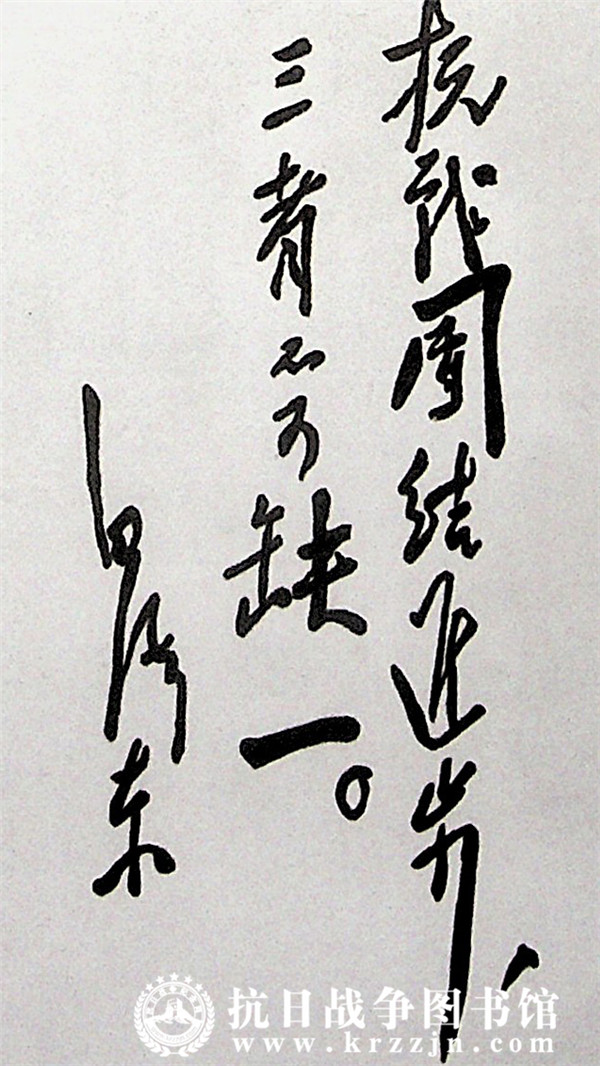 抗战团结进步、
三者不可缺一。
毛泽东
抗日战争图书馆
www.krzzjn.com